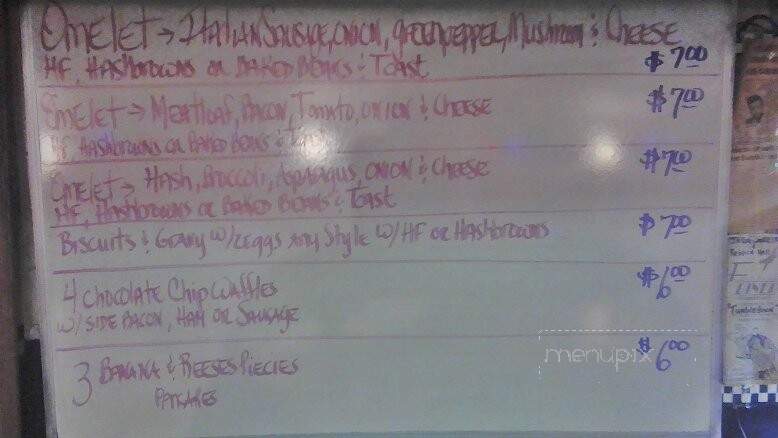 Omelet → Italian Sausage, onion, greenpepper, Mushroom & Cheese
HF, Hashbrowns or Baked Beans & Toast $7.00
Omelet → Meatloaf, Bacon, Tomato, onion & Cheese $7.00
HF Hashbrowns or Baked Beans & Toast
Omelet → Hash, Broccoli, Asparagus, onion & Cheese $7.00
HF, Hashbrowns or Baked Beans & Toast
Biscuits & Gravy w/2eggs Any Style w/ HF or Hashbrowns $7.00
4 Chocolate Chip Waffles $6.00
w/ Side Bacon, Ham or Sausage
3 Banana & Reeses Piecies $6.00
Pancakes
menupix